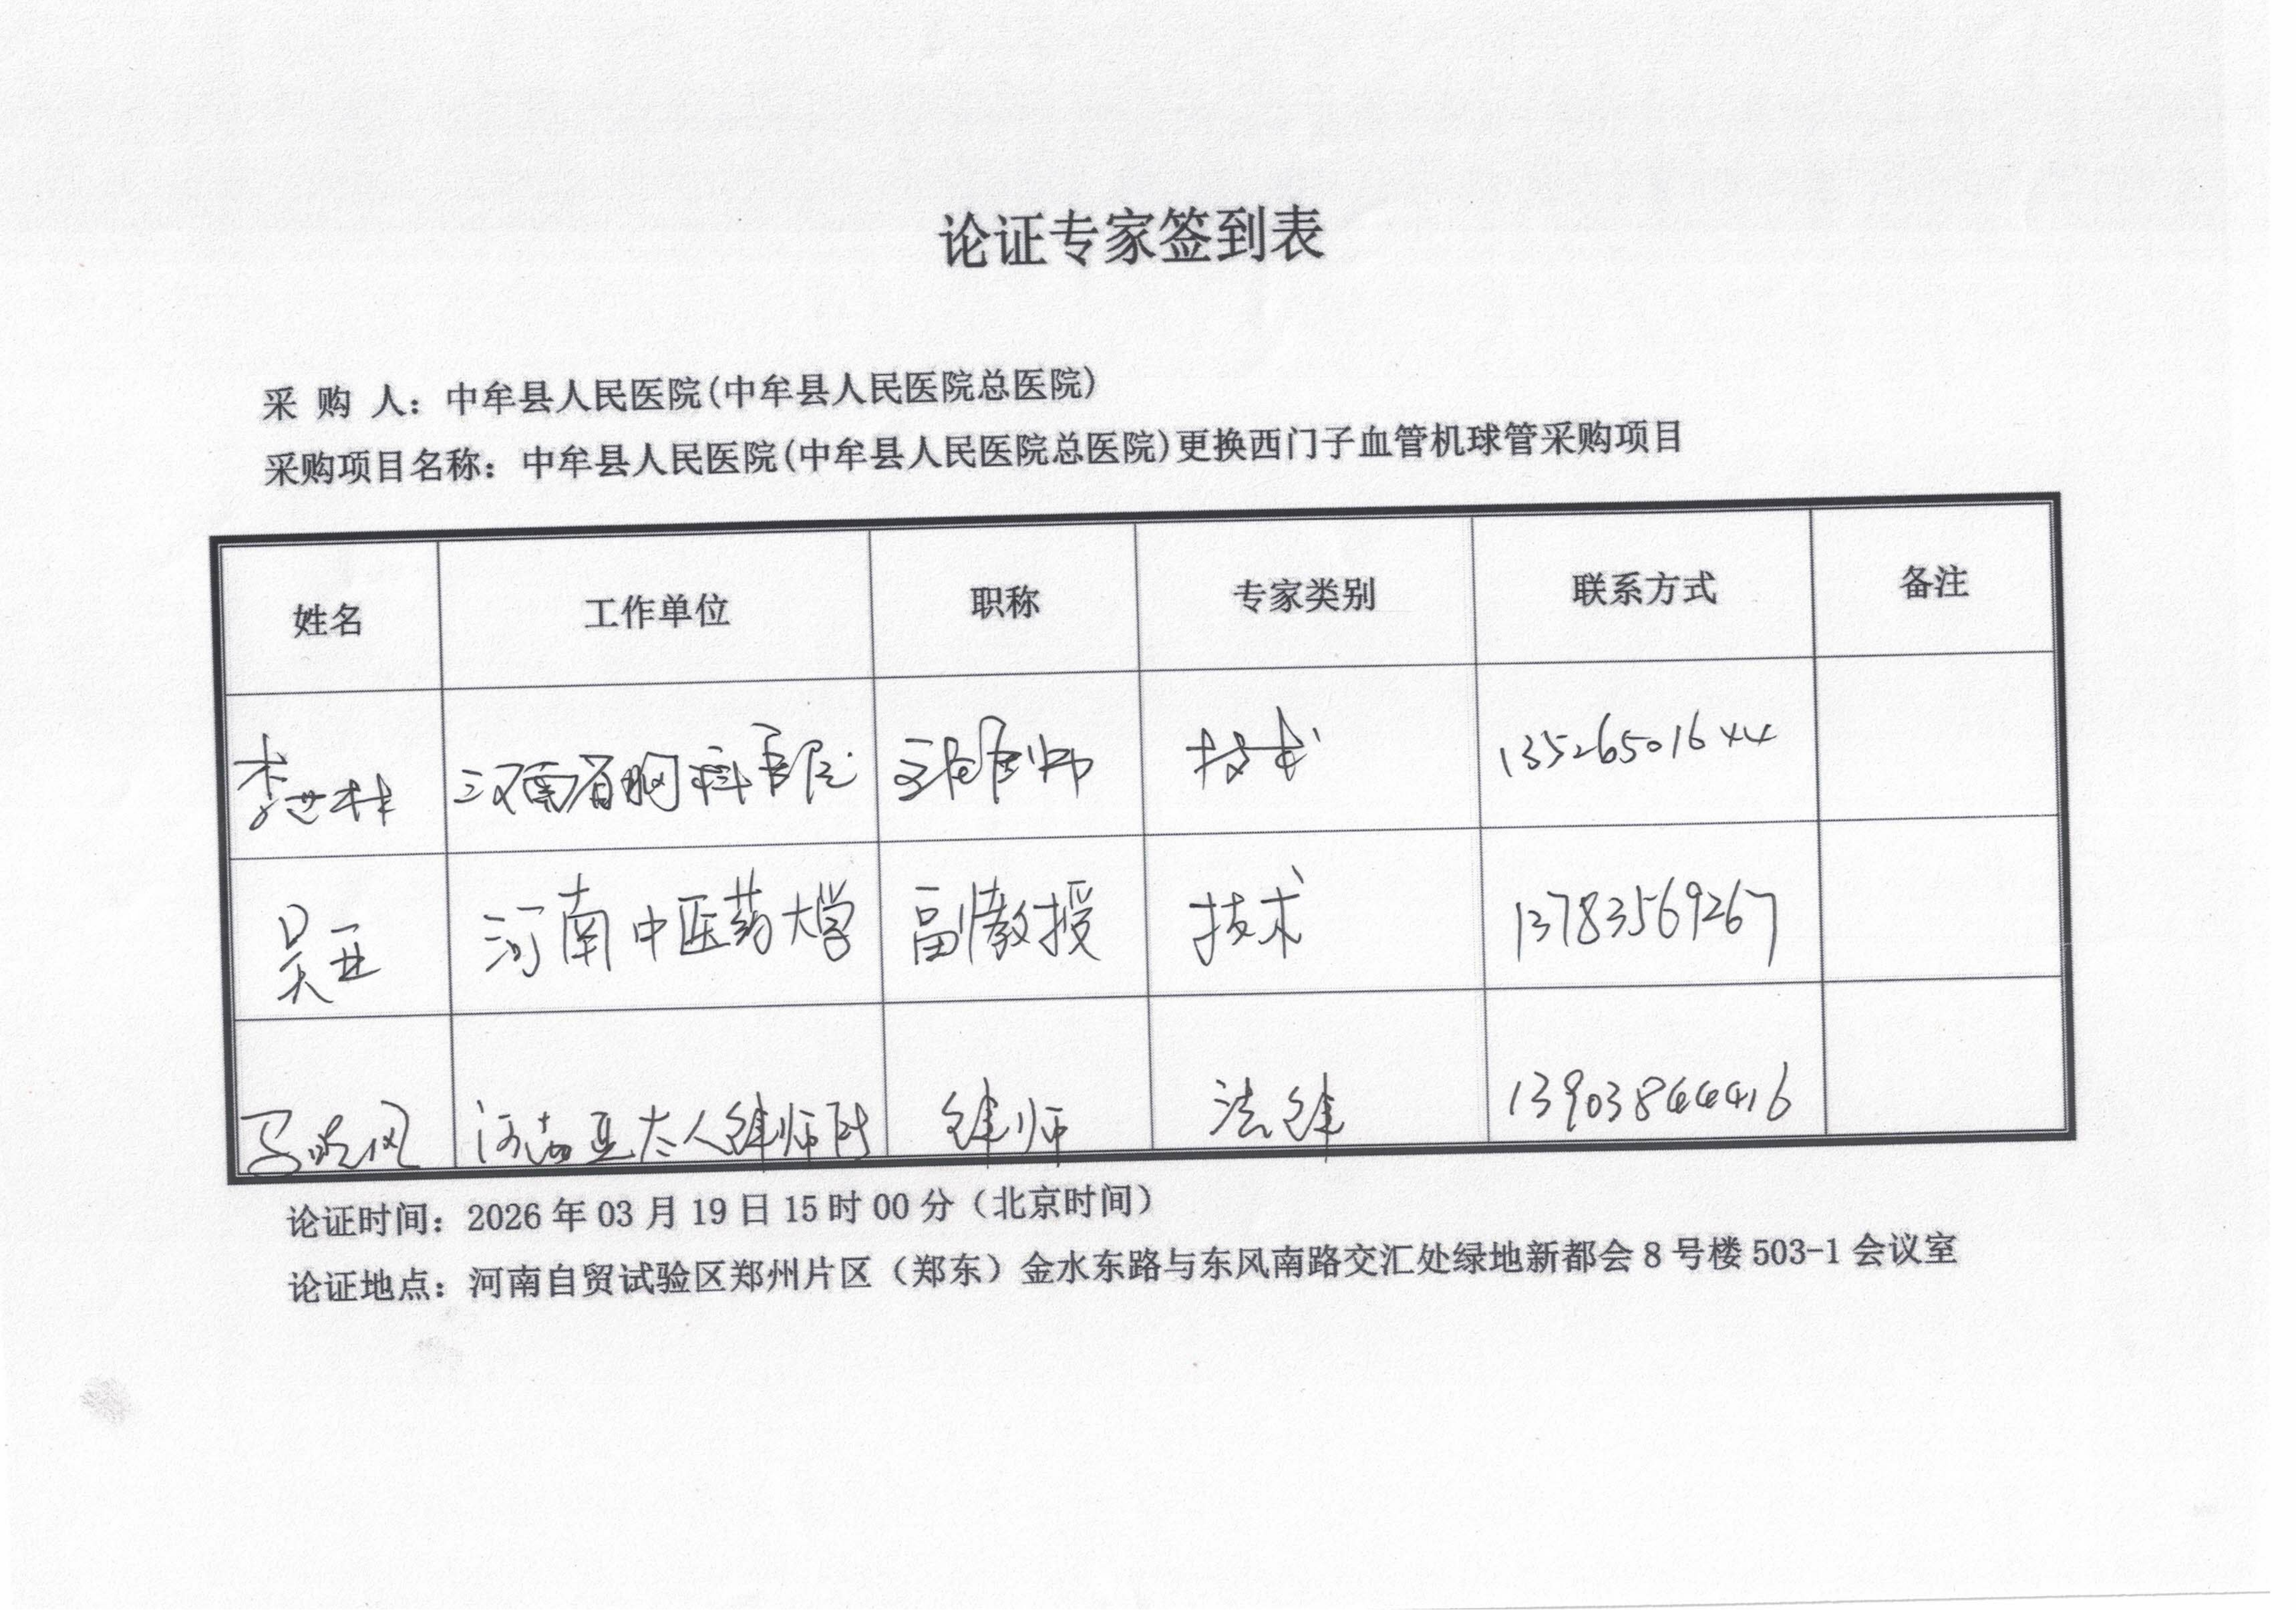 论证专家签到表
采 购 人：中牟县人民医院(中牟县人民医院总医院)
采购项目名称：中牟县人民医院(中牟县人民医院总医院)更换西门子血管机球管采购项目
姓名 工作单位 职称 专家类别 联系方式 备注
李世林 河南省胸科医院 技术 13526501644
吴亚 河南中医药大学 副教授 技术 13783569267
马晓风 河南亚太人律师所 律师 法律 13903844416
论证时间：2026 年 03 月 19 日 15 时 00 分（北京时间）
论证地点：河南自贸试验区郑州片区（郑东）金水东路与东风南路交汇处绿地新都会 8 号楼 503-1 会议室